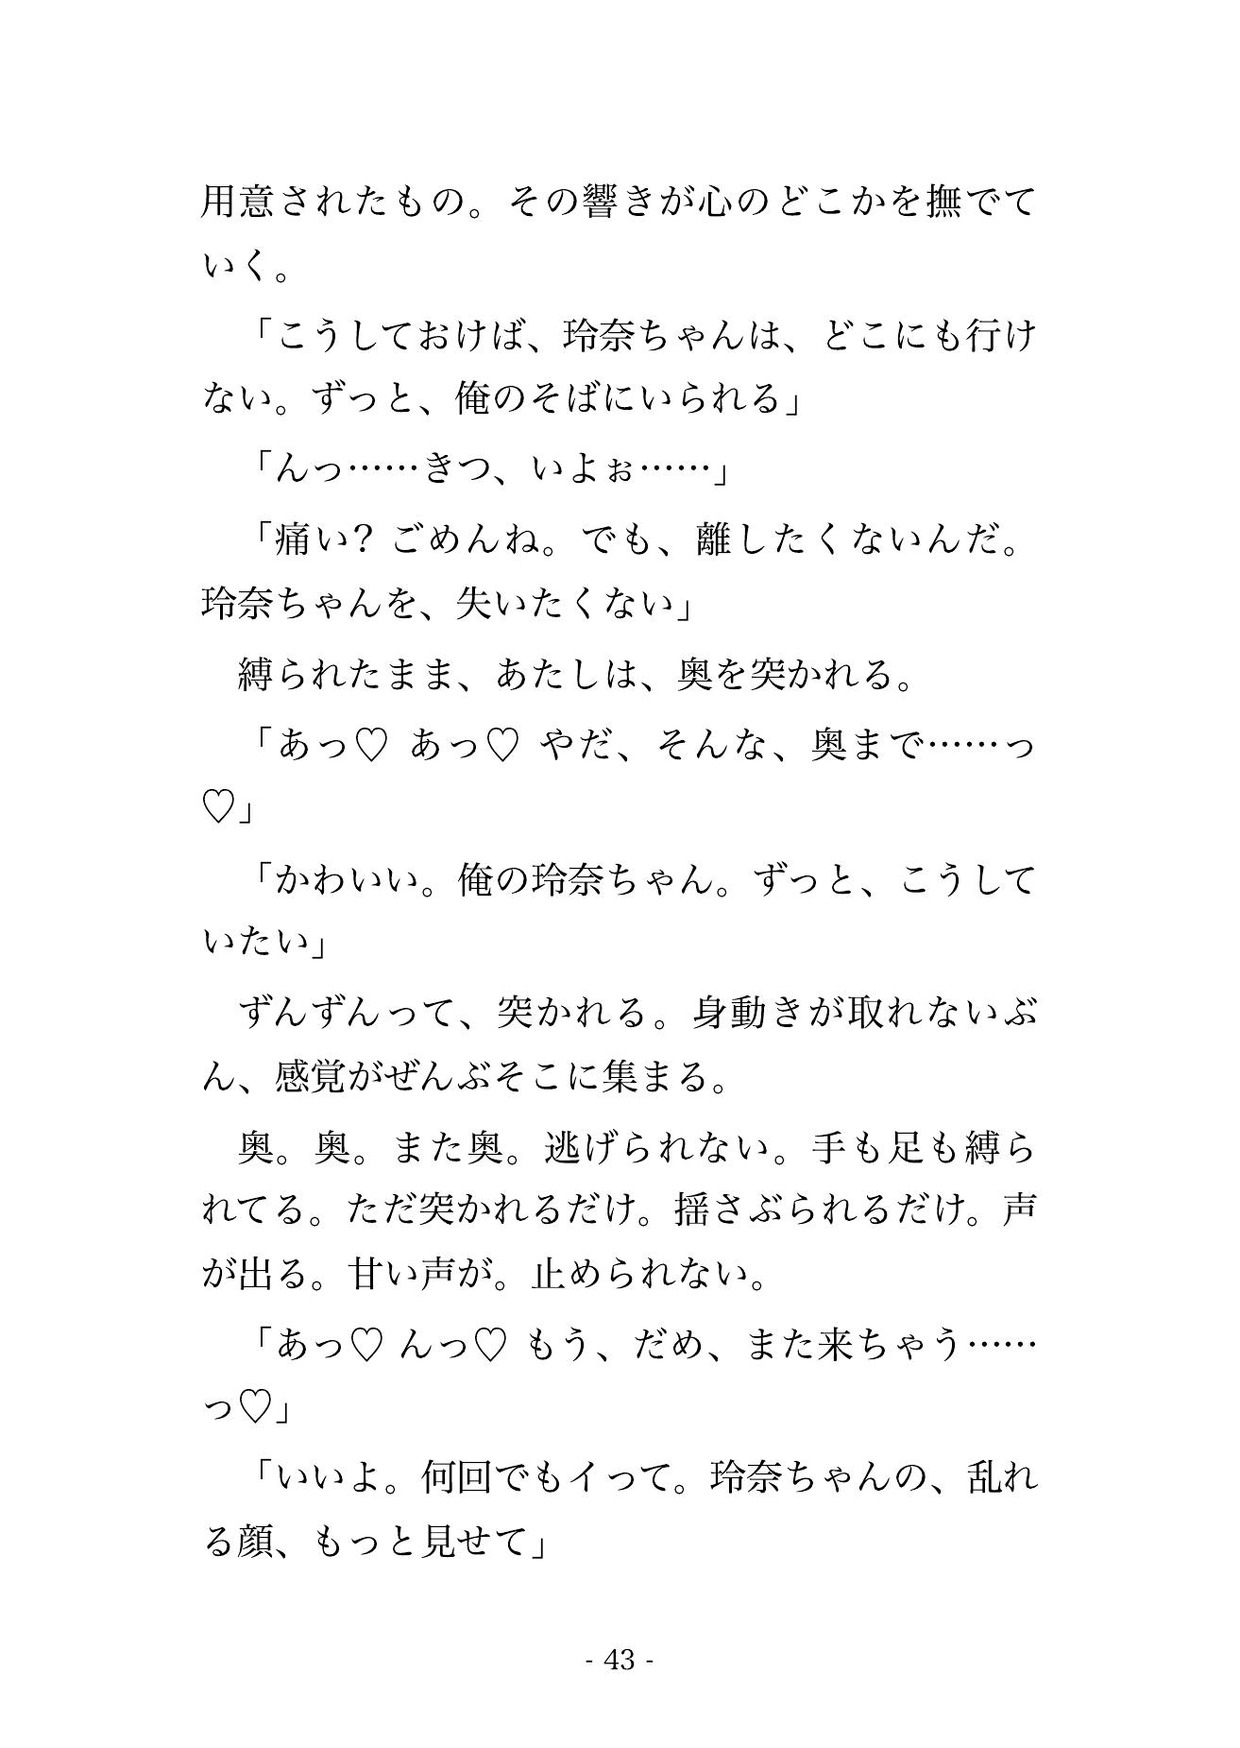 用意されたもの。その響きが心のどこかを撫でて
いく。
「こうしておけば、玲奈ちゃんは、どこにも行け
ない。ずっと、俺のそばにいられる」
「んっ……きつ、いよぉ……」
「痛い? ごめんね。でも、離したくないんだ。
玲奈ちゃんを、失いたくない」
縛られたまま、あたしは、奥を突かれる。
「あっ♡ あっ♡ やだ、そんな、奥まで……っ
♡」
「かわいい。俺の玲奈ちゃん。ずっと、こうして
いたい」
ずんずんって、突かれる。身動きが取れないぶ
ん、感覚がぜんぶそこに集まる。
奥。奥。また奥。逃げられない。手も足も縛ら
れてる。ただ突かれるだけ。揺さぶられるだけ。声
が出る。甘い声が。止められない。
「あっ♡ んっ♡ もう、だめ、また来ちゃう……
っ♡」
「いいよ。何回でもイって。玲奈ちゃんの、乱れ
る顔、もっと見せて」
- 43 -